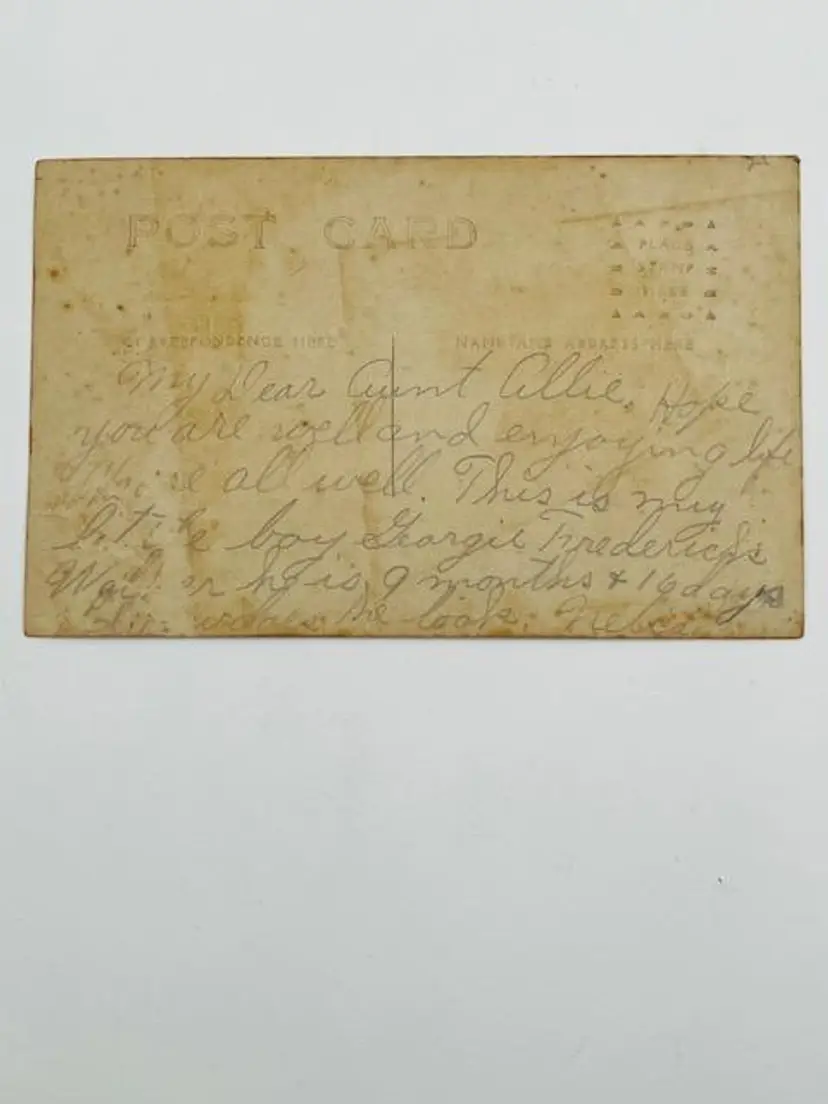 POST CARD
PLACE
STAMP
HERE
CORRESPONDENCE HERE
NAME AND ADDRESS HERE
My Dear Aunt Allie, Hope
you are well and enjoying life
all well. This is my
little boy Georgie Frederick
he is 9 months & 16 days
he look.